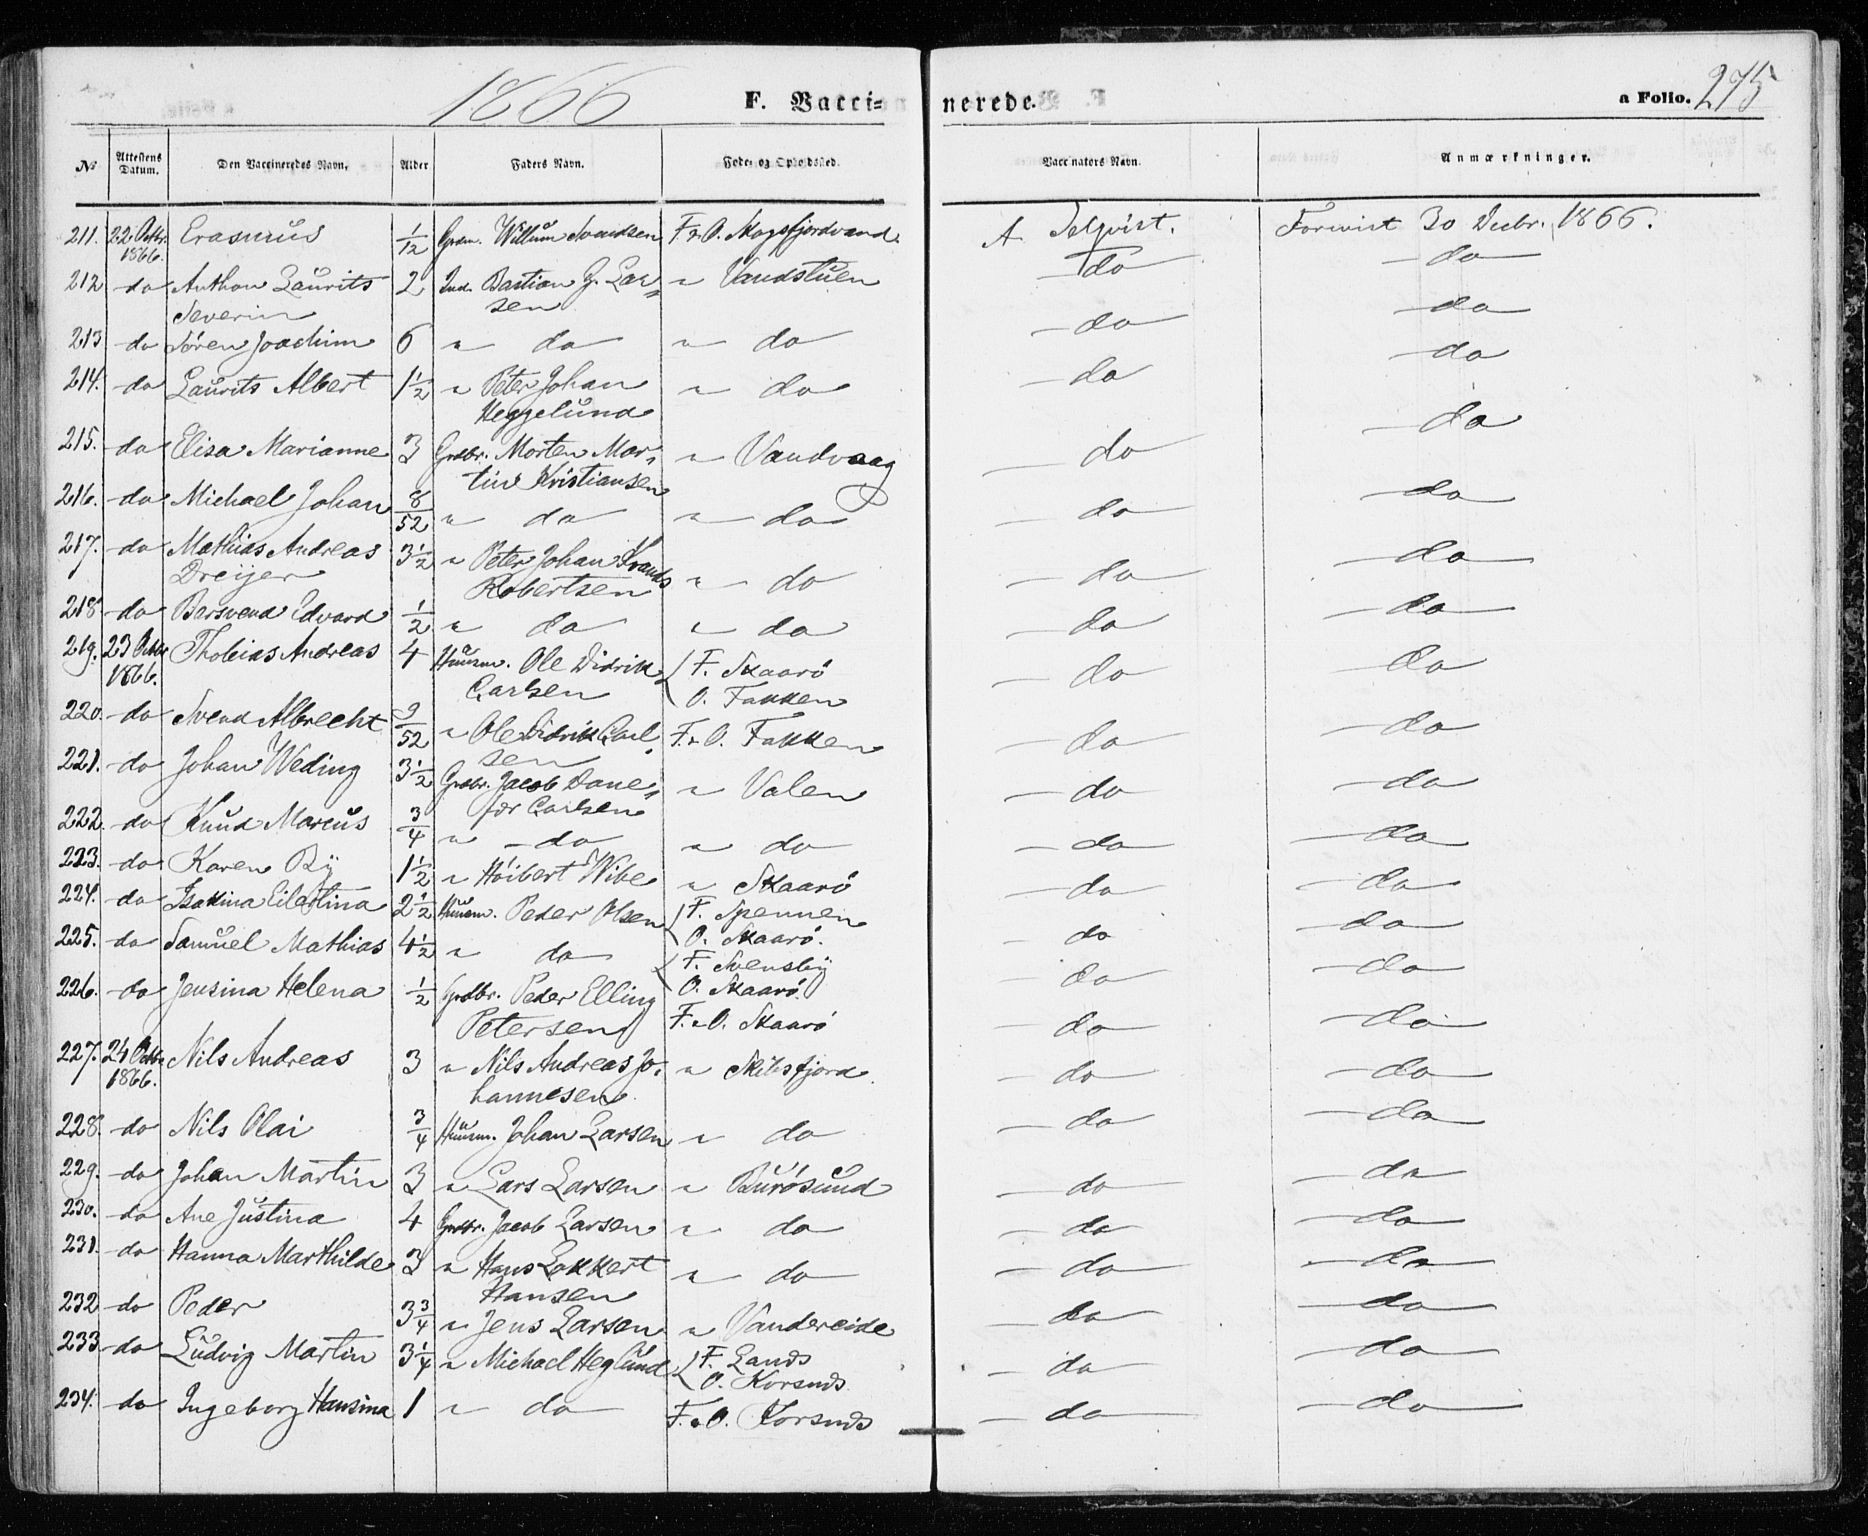 1866 F. Vacci- nerede. a Folio. 275
No Attestens Datum. Den Vaccineredes Navn. Alder Faders Navn. Føde- og Opholdssted. Vaccinators Navn. Anmærkninger.
211. 22 Octbr. 1866. Erasmus 1/12 Willum Svendsen F. & O. Skogsfjordvand A. Forevist 30 Decbr. 1866.
212 do Anthon Laurits 2 Ind. Bastian Z. Lar- " Vandstuen do do
Severin sen
213 do Søren Joachim 6 " do " do do do
214. do Laurits Albert 1 1/2 " Peter Johan " do do do
Heggelund
215. do Elisa Marianne 3 Grdbr. Morten Mar- " Vandvaag do do
tin Kristiansen
216. do Michael Johan 8/52 " do " do do do
217. do Mathias Andreas 3 1/2 " Peter Johan Frands " do do do
Dreyer Robertsen
218 do Barsvend Edvard 1/2 " do " do do do
219. 23 Octbr 1866. Thobias Andreas 4 Huusm. Ole Didrik F. Skaarö do do
Carlsen O. Fakken
220. do Svend Albrecht 9/52 " Ole Didrik Carl- F. & O. Fakken do do
sen
221. do Johan Weding 3 1/2 Grdbr. Jacob Dane- " Valen do do
for Carlsen
222. do Knud Marcus 3/4 " do " do do do
223. do Karen By 1 1/2 " Høibert Wibe " Skaarö do do
224. do Isakina Eilertina 2 1/2 Huusm. Peder Olsen F. Spennen do do
O. Skaarö.
225. do Samuel Mathias 4 1/2 " do F. Svensby do do
O. Skaarö
226. do Jensina Helena 1/2 Grdbr. Peder Elling F. & O. Skaarö do do
Petersen
227. 24 Octbr 1866. Nils Andreas 3 " Nils Andreas Jo- " Skibsfjord do do
hannesen
228. do Nils Olai 3/4 Huusm. Johan Larsen " do do do
229. do Johan Martin 3 " Lars Larsen " Burösund do do
230. do Ane Justina 4 Grdbr. Jacob Larsen " do do do
231. do Hanna Marthilde 3 " Hans Lokkert " do do do
Hansen
232 do Peder 3 3/4 " Jens Larsen " Vandereide do do
233 do Ludvig Martin 3 1/4 " Michael Heglund F. Lands do do
O. Korsnds
234. do Ingeborg Hansina 1 " do F. & O. Korsnds do do